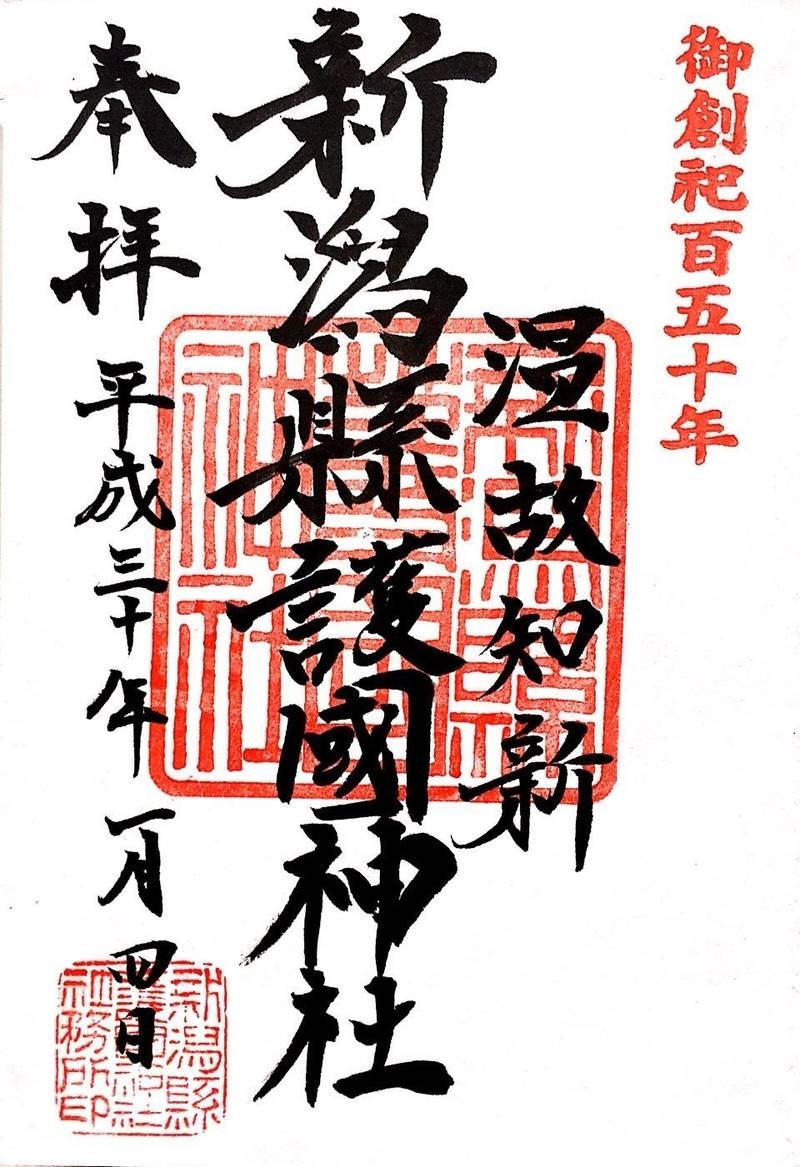 御創祀百五十年
温故知新
新潟縣護國神社
奉拝 平成三十年 一月四日
新潟縣
護國神社
社務所印